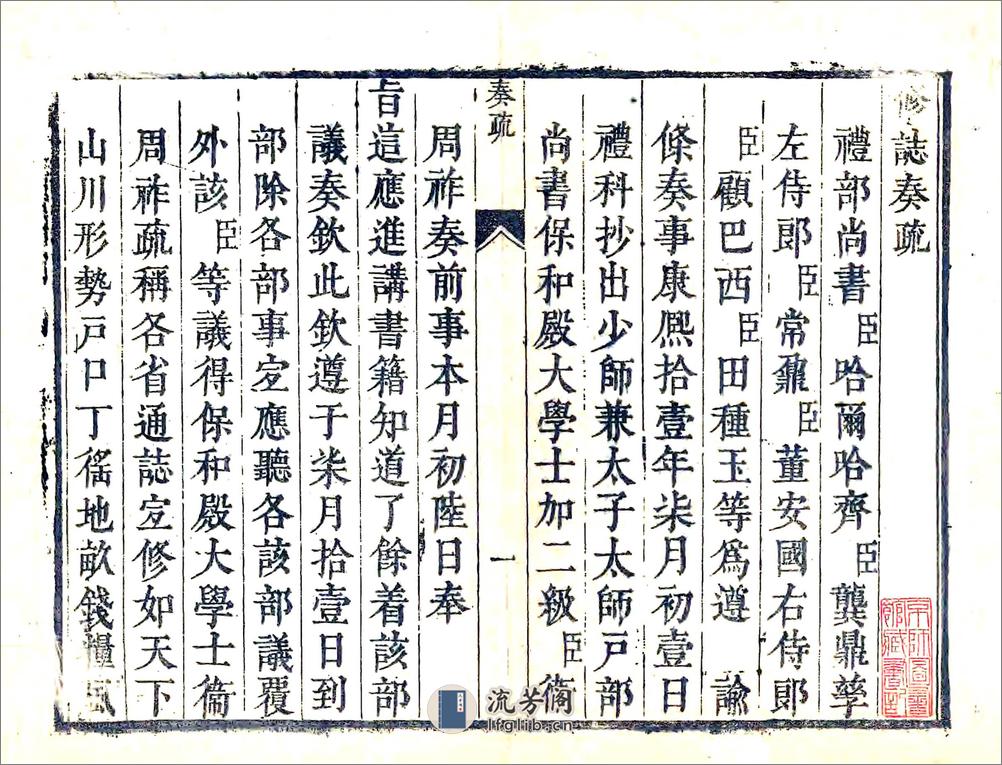 修誌奏疏
禮部尚書臣哈爾哈齊臣龔鼎孳
左侍郎臣常鼐臣董安國右侍郎
臣顧巴西臣田種玉等爲遵諭
條奏事康熈拾壹年柒月初壹日
禮科抄出少師兼太子太師戸部
尚書保和殿大學士加二級臣衞
奏疏
一
周祚奏前事本月初陸日奉
旨這應進講書籍知道了餘着該部
議奏欽此欽遵于柒月拾壹日到
部除各部事宐應聽各該部議覆
外該臣等議得保和殿大學士衞
周祚疏稱各省通誌宐修如天下
山川形勢戸口丁徭地畝錢糧風
京師圖書館藏書記
流芳阁
lfglib.cn